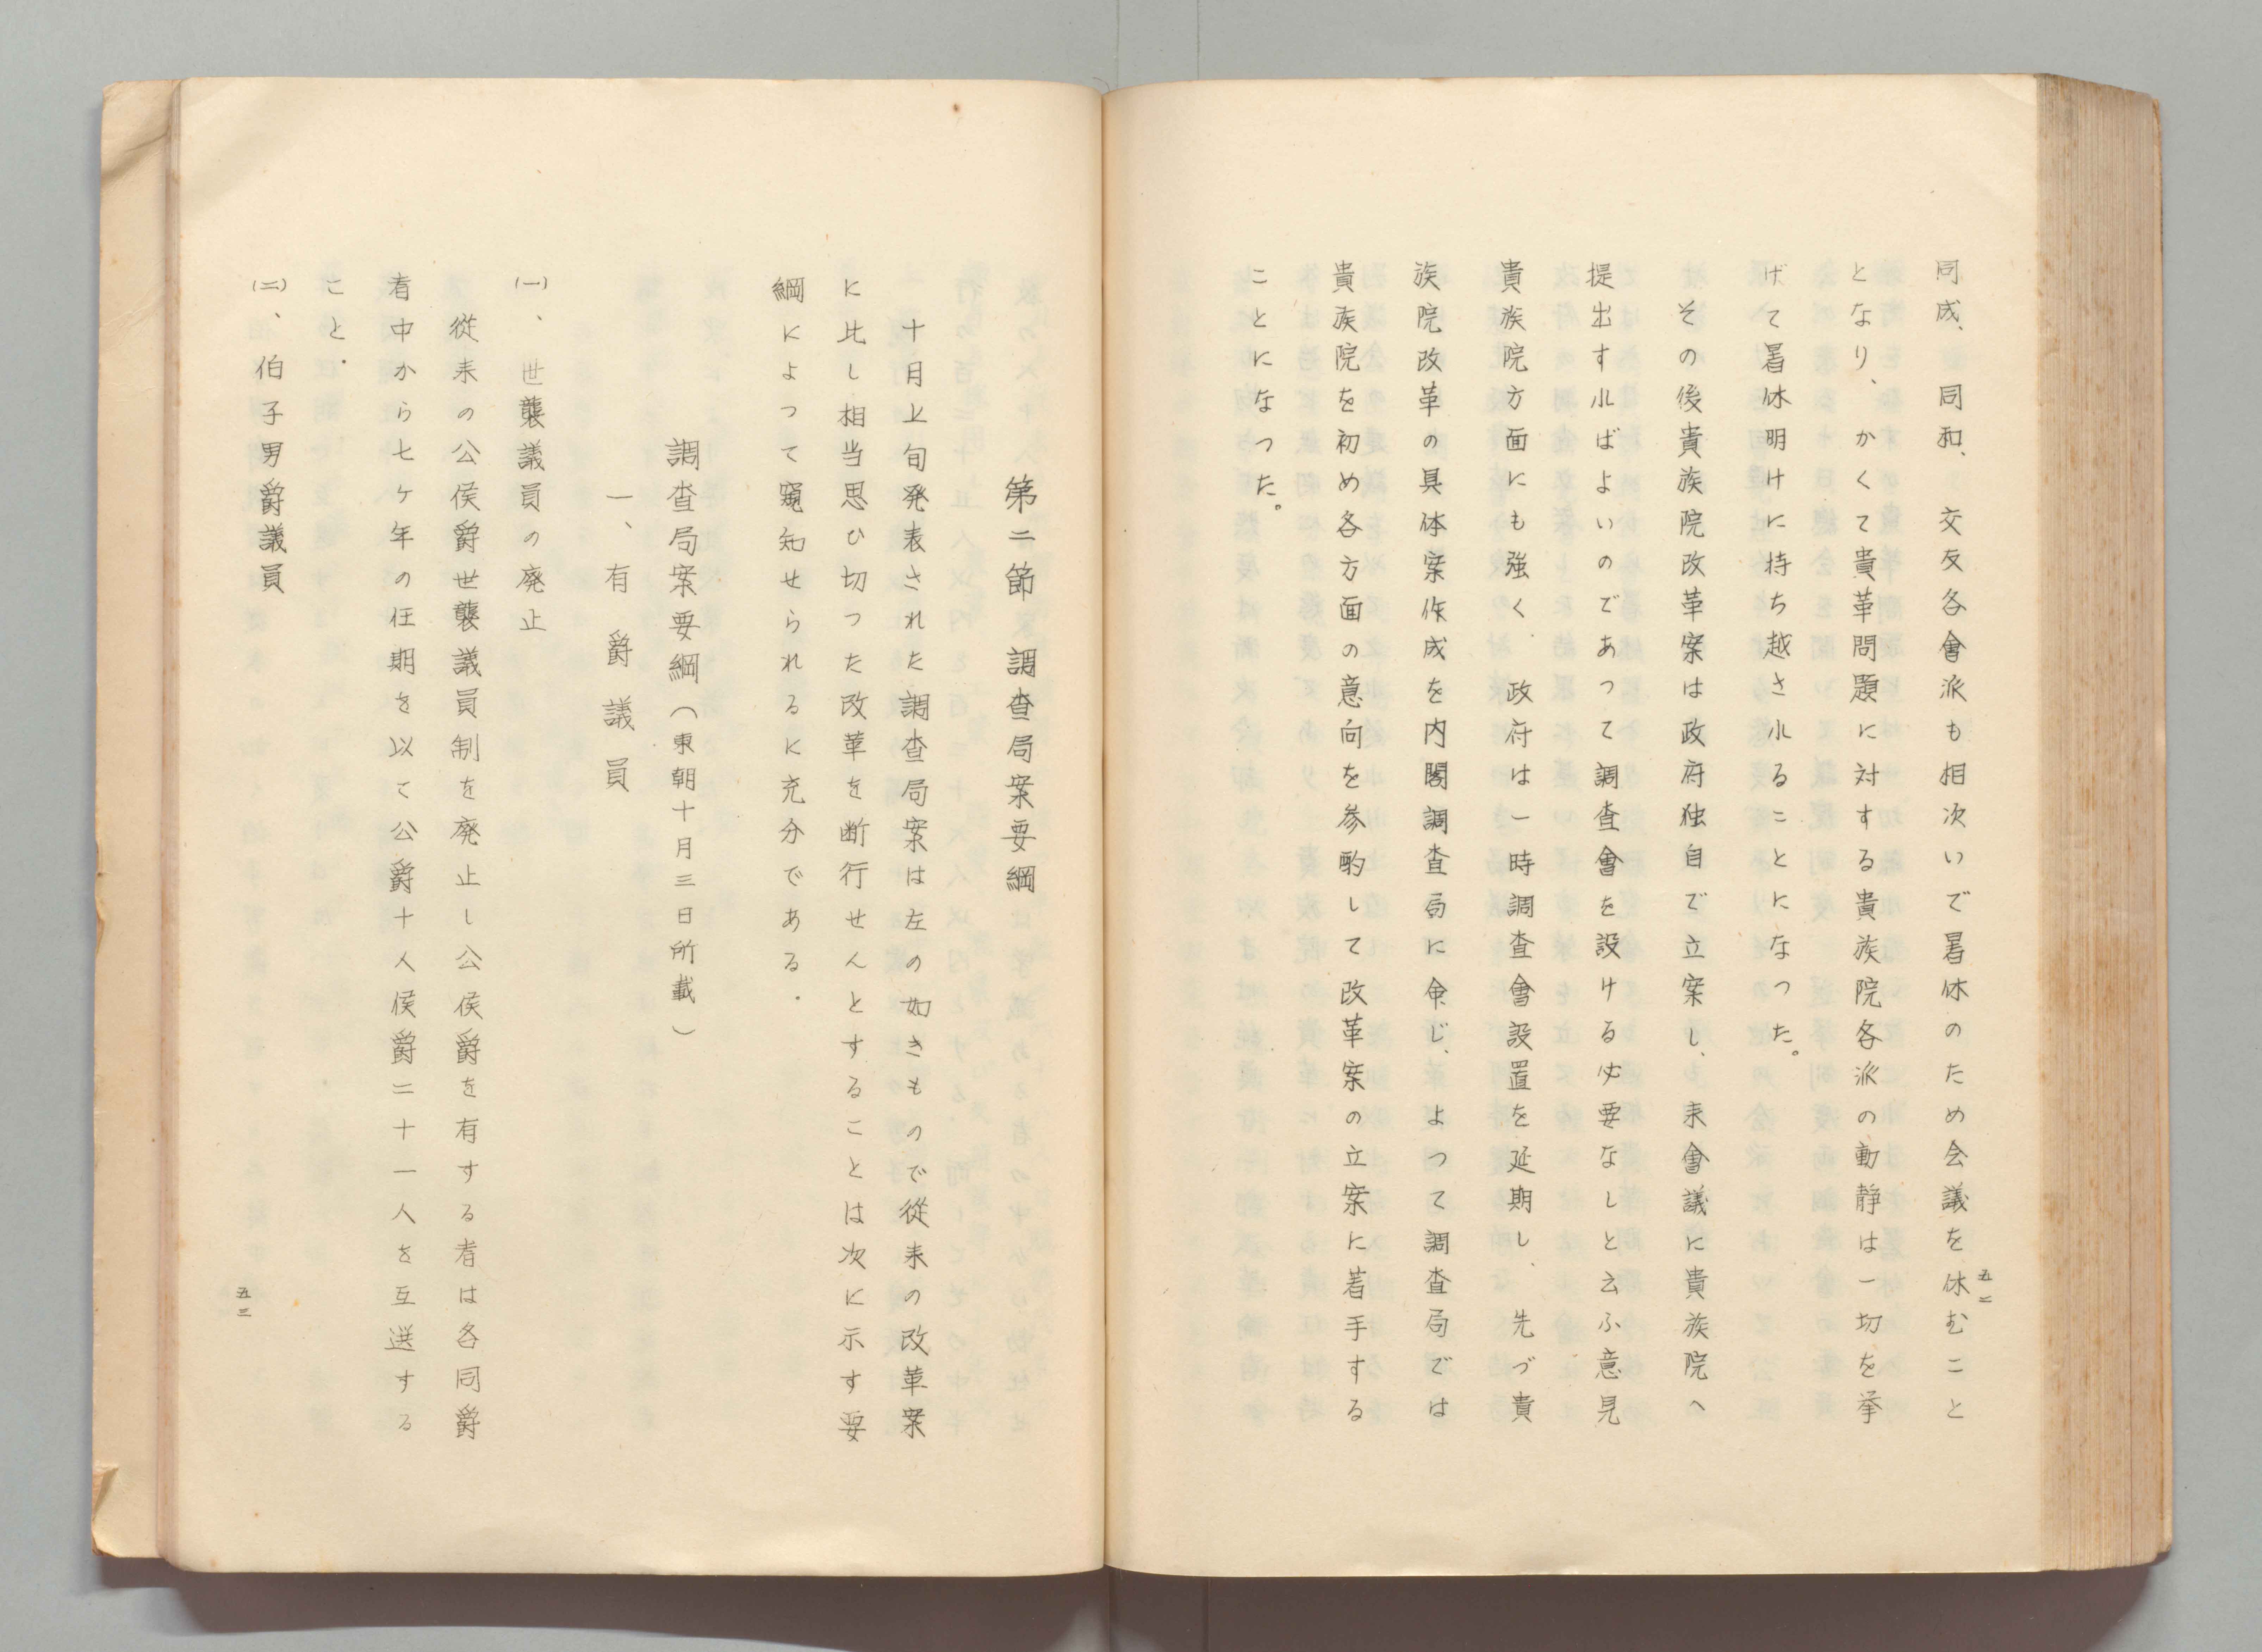 同成、同和、交友各會派も相次いで暑休のため会議を休むこと
となり、かくて貴革問題に対する貴族院各派の動静は一切を挙
げて暑休明けに持ち越されることになつた。
その後貴族院改革案は政府独自で立案し、来會議に貴族院へ
提出すればよいのであつて調査會を設ける必要なしと云ふ意見
貴族院方面にも強く、政府は一時調査會設置を延期し、先づ貴
族院改革の具体案作成を内閣調査局に命じ、よつて調査局では
貴族院を初め各方面の意向を参酌して改革案の立案に着手する
ことになつた。
五二
第二節 調査局案要綱
十月上旬発表された調査局案は左の如きもので従来の改革案
に比し相当思ひ切つた改革を断行せんとすることは次に示す要
綱によつて窺知せられるに充分である.
調査局案要綱(東朝十月三日所載)
一、有爵議員
(一)、世襲議員の廃止
従来の公侯爵世襲議員制を廃止し公侯爵を有する者は各同爵
者中から七ケ年の任期を以て公爵十人侯爵二十一人を互選する
こと.
(二)、伯子男爵議員
五三